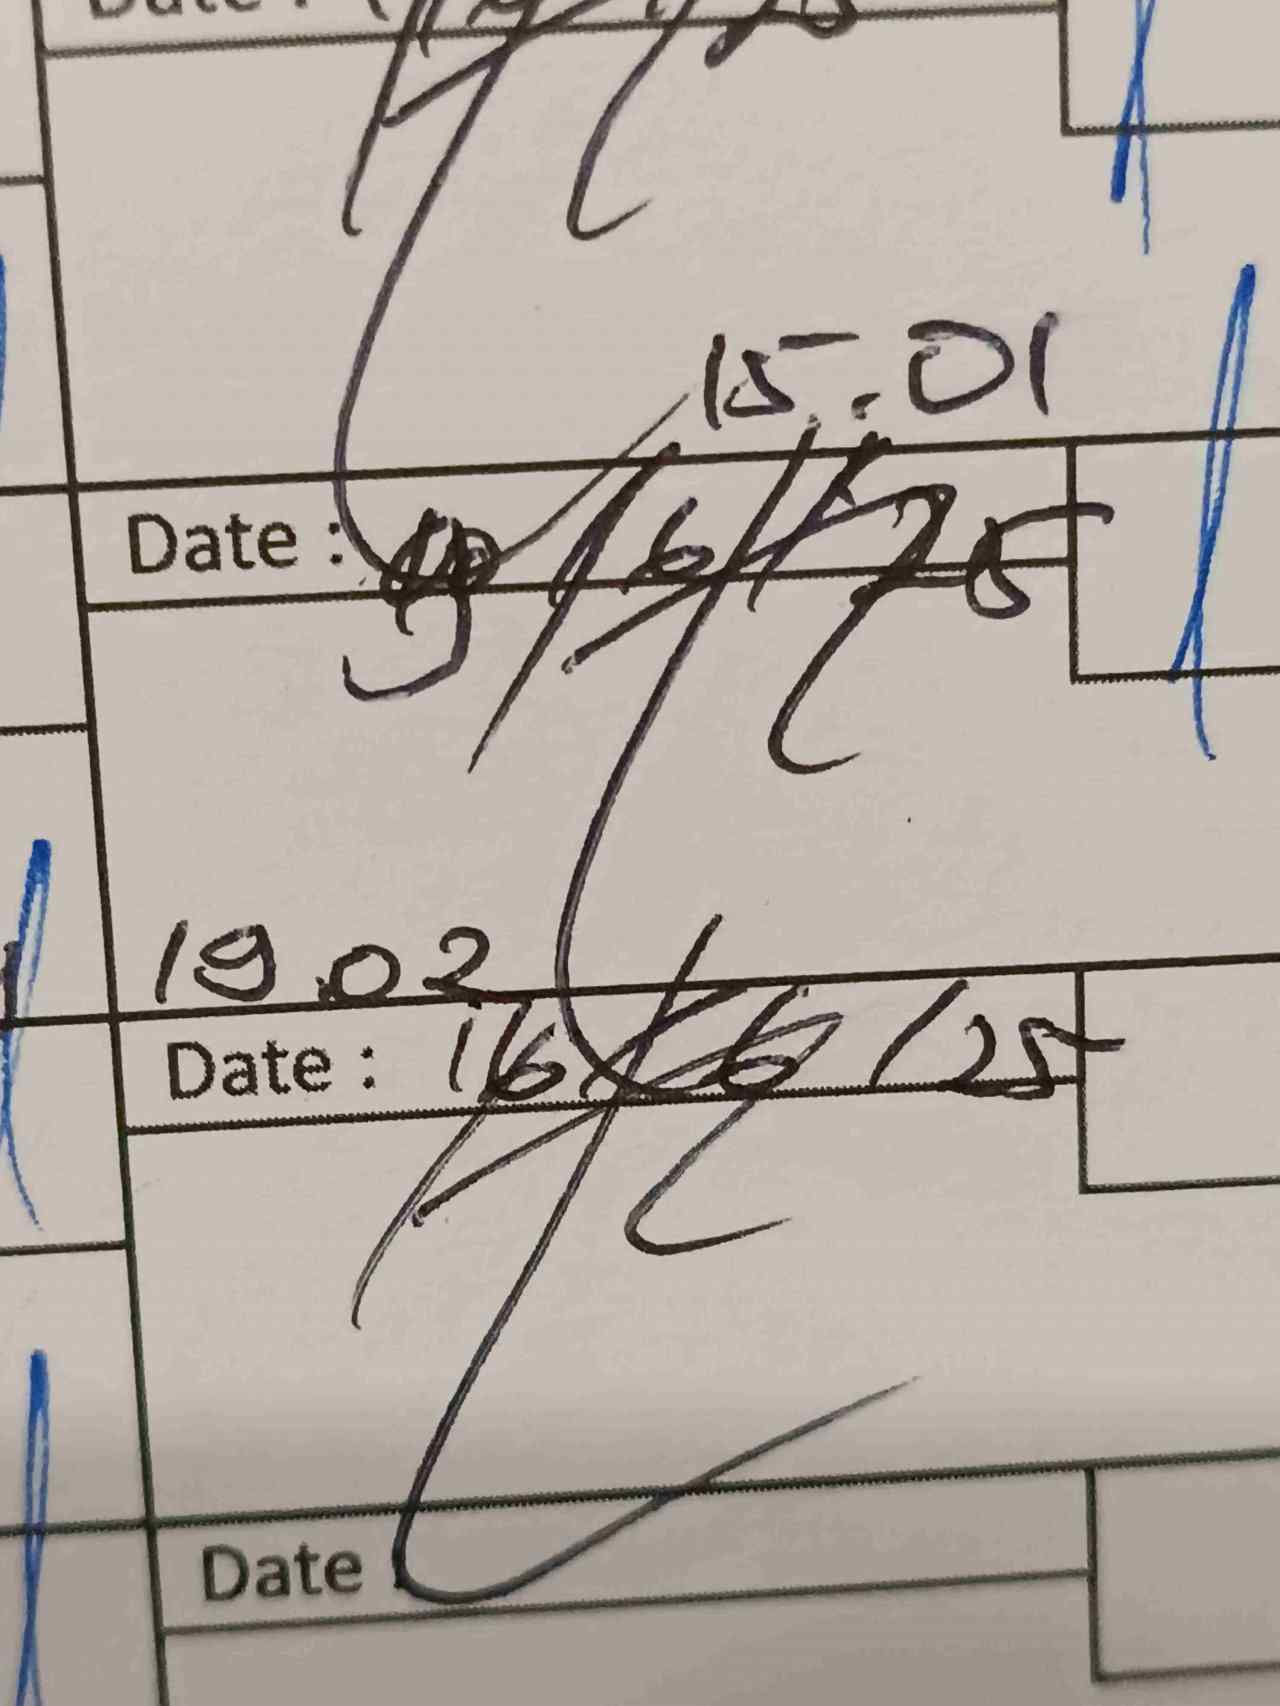 Date :
15.01
Date : 9/6/25
19.02
Date : 16/6/25
Date